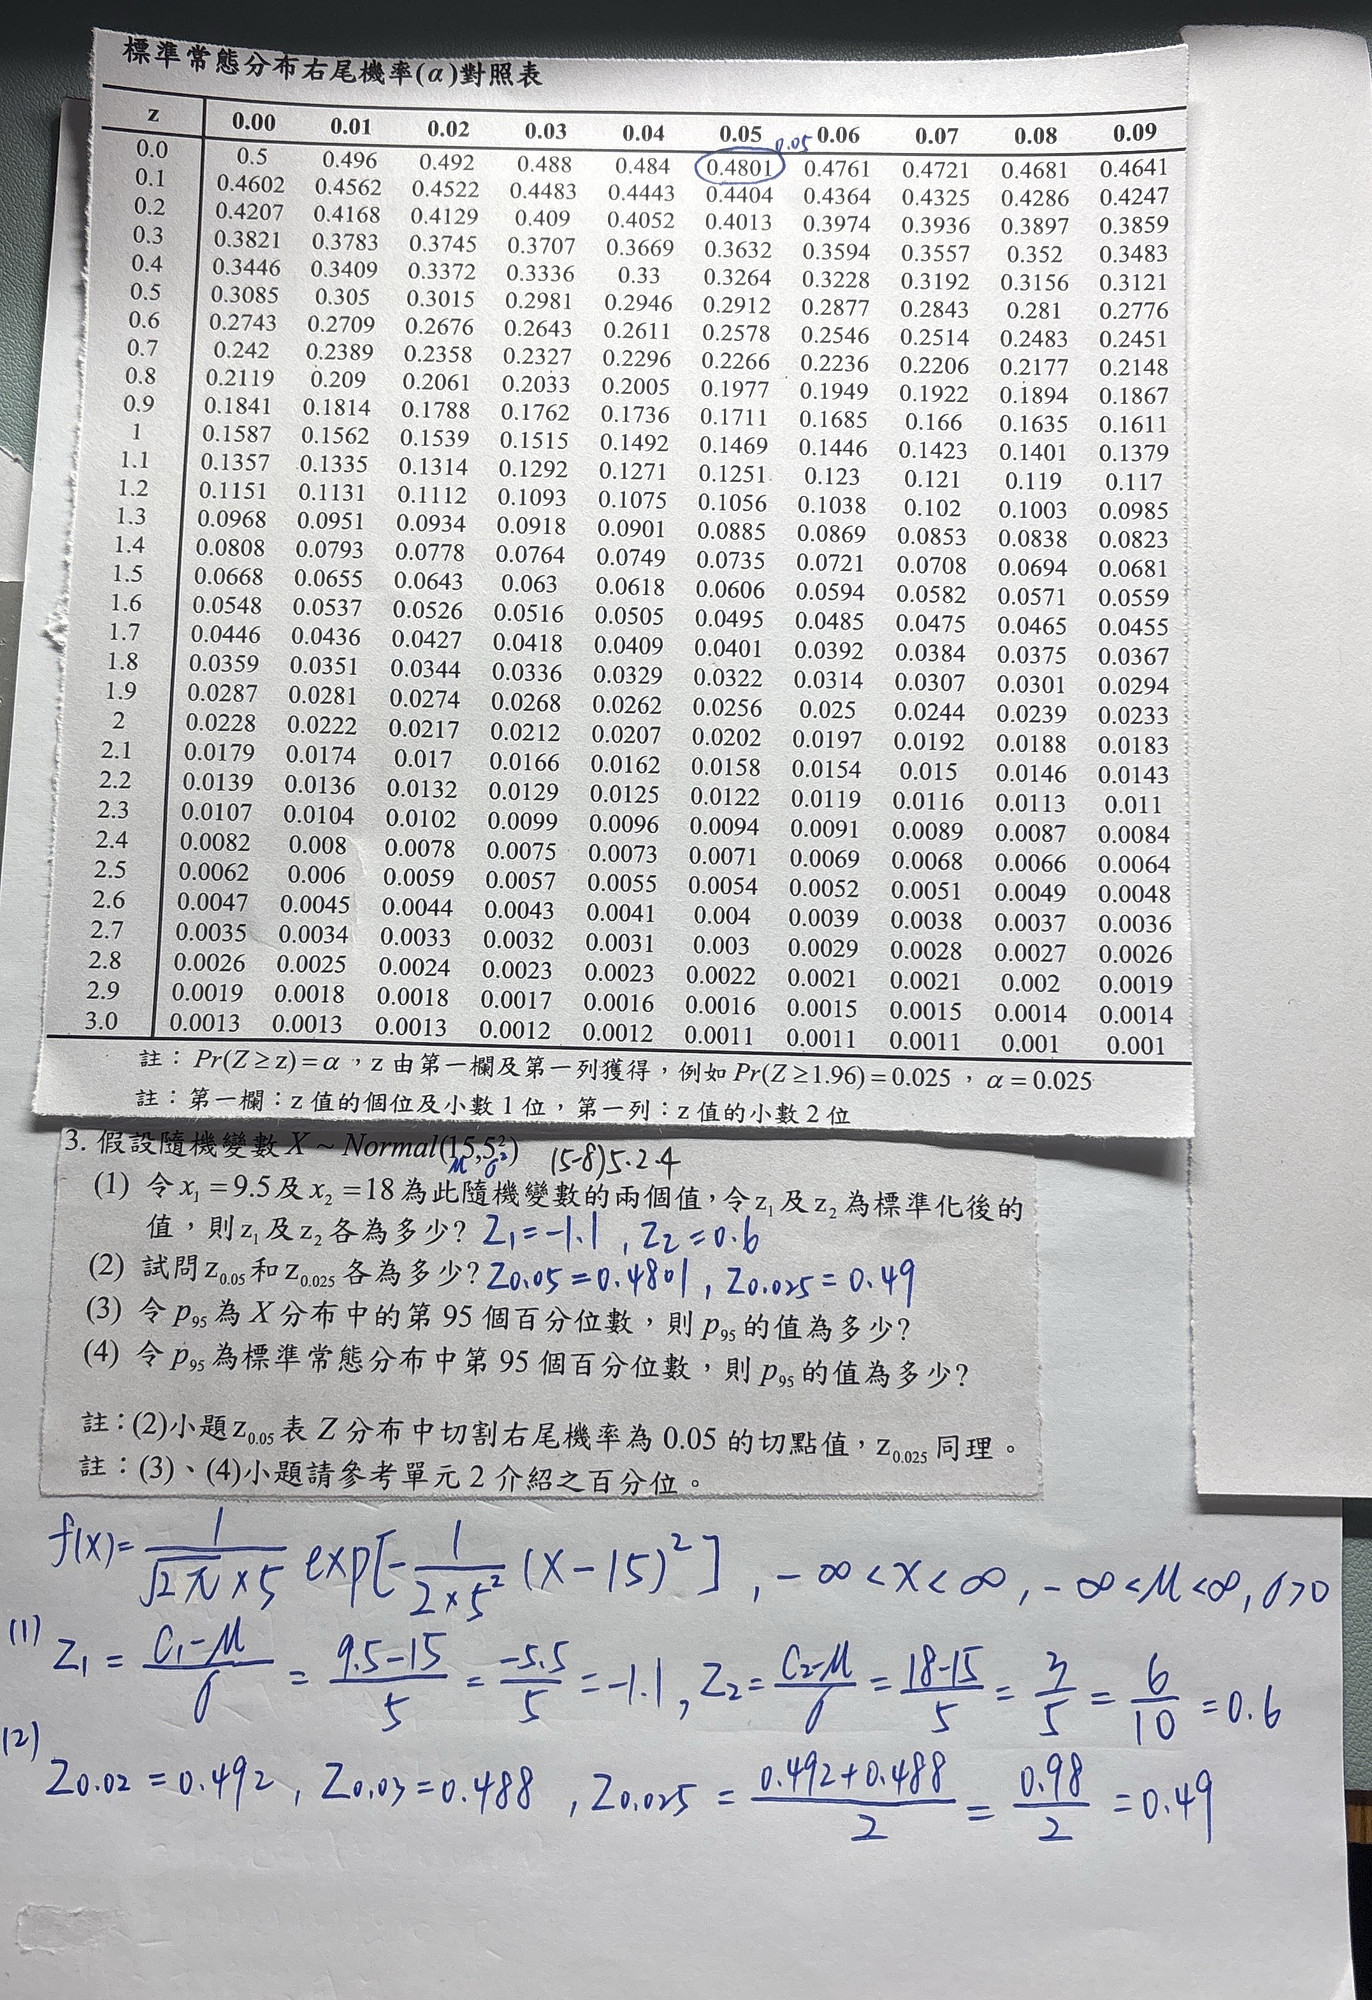 標準常態分布右尾機率(α)對照表
z 0.00 0.01 0.02 0.03 0.04 0.05 0.06 0.07 0.08 0.09
0.05
0.0 0.5 0.496 0.492 0.488 0.484 0.4801 0.4761 0.4721 0.4681 0.4641
0.1 0.4602 0.4562 0.4522 0.4483 0.4443 0.4404 0.4364 0.4325 0.4286 0.4247
0.2 0.4207 0.4168 0.4129 0.409 0.4052 0.4013 0.3974 0.3936 0.3897 0.3859
0.3 0.3821 0.3783 0.3745 0.3707 0.3669 0.3632 0.3594 0.3557 0.352 0.3483
0.4 0.3446 0.3409 0.3372 0.3336 0.33 0.3264 0.3228 0.3192 0.3156 0.3121
0.5 0.3085 0.305 0.3015 0.2981 0.2946 0.2912 0.2877 0.2843 0.281 0.2776
0.6 0.2743 0.2709 0.2676 0.2643 0.2611 0.2578 0.2546 0.2514 0.2483 0.2451
0.7 0.242 0.2389 0.2358 0.2327 0.2296 0.2266 0.2236 0.2206 0.2177 0.2148
0.8 0.2119 0.209 0.2061 0.2033 0.2005 0.1977 0.1949 0.1922 0.1894 0.1867
0.9 0.1841 0.1814 0.1788 0.1762 0.1736 0.1711 0.1685 0.166 0.1635 0.1611
1 0.1587 0.1562 0.1539 0.1515 0.1492 0.1469 0.1446 0.1423 0.1401 0.1379
1.1 0.1357 0.1335 0.1314 0.1292 0.1271 0.1251 0.123 0.121 0.119 0.117
1.2 0.1151 0.1131 0.1112 0.1093 0.1075 0.1056 0.1038 0.102 0.1003 0.0985
1.3 0.0968 0.0951 0.0934 0.0918 0.0901 0.0885 0.0869 0.0853 0.0838 0.0823
1.4 0.0808 0.0793 0.0778 0.0764 0.0749 0.0735 0.0721 0.0708 0.0694 0.0681
1.5 0.0668 0.0655 0.0643 0.063 0.0618 0.0606 0.0594 0.0582 0.0571 0.0559
1.6 0.0548 0.0537 0.0526 0.0516 0.0505 0.0495 0.0485 0.0475 0.0465 0.0455
1.7 0.0446 0.0436 0.0427 0.0418 0.0409 0.0401 0.0392 0.0384 0.0375 0.0367
1.8 0.0359 0.0351 0.0344 0.0336 0.0329 0.0322 0.0314 0.0307 0.0301 0.0294
1.9 0.0287 0.0281 0.0274 0.0268 0.0262 0.0256 0.025 0.0244 0.0239 0.0233
2 0.0228 0.0222 0.0217 0.0212 0.0207 0.0202 0.0197 0.0192 0.0188 0.0183
2.1 0.0179 0.0174 0.017 0.0166 0.0162 0.0158 0.0154 0.015 0.0146 0.0143
2.2 0.0139 0.0136 0.0132 0.0129 0.0125 0.0122 0.0119 0.0116 0.0113 0.011
2.3 0.0107 0.0104 0.0102 0.0099 0.0096 0.0094 0.0091 0.0089 0.0087 0.0084
2.4 0.0082 0.008 0.0078 0.0075 0.0073 0.0071 0.0069 0.0068 0.0066 0.0064
2.5 0.0062 0.006 0.0059 0.0057 0.0055 0.0054 0.0052 0.0051 0.0049 0.0048
2.6 0.0047 0.0045 0.0044 0.0043 0.0041 0.004 0.0039 0.0038 0.0037 0.0036
2.7 0.0035 0.0034 0.0033 0.0032 0.0031 0.003 0.0029 0.0028 0.0027 0.0026
2.8 0.0026 0.0025 0.0024 0.0023 0.0023 0.0022 0.0021 0.0021 0.002 0.0019
2.9 0.0019 0.0018 0.0018 0.0017 0.0016 0.0016 0.0015 0.0015 0.0014 0.0014
3.0 0.0013 0.0013 0.0013 0.0012 0.0012 0.0011 0.0011 0.0011 0.001 0.001
註：Pr(Z≥z)=α，z 由第一欄及第一列獲得，例如 Pr(Z≥1.96)=0.025，α=0.025
註：第一欄：z 值的個位及小數 1 位，第一列：z 值的小數 2 位
3. 假設隨機變數 X ~ Normal(15,5²) (5-8)5.2.4
μ σ²
(1) 令 x₁ =9.5 及 x₂ =18 為此隨機變數的兩個值，令 z₁ 及 z₂ 為標準化後的
值，則 z₁ 及 z₂ 各為多少? Z₁=-1.1, Z₂=0.6
(2) 試問 z₀.₀₅ 和 z₀.₀₂₅ 各為多少? Z₀.₀₅=0.4801, Z₀.₀₂₅=0.49
(3) 令 p₉₅ 為 X 分布中的第 95 個百分位數，則 p₉₅ 的值為多少?
(4) 令 p₉₅ 為標準常態分布中第 95 個百分位數，則 p₉₅ 的值為多少?
註：(2)小題 z₀.₀₅ 表 Z 分布中切割右尾機率為 0.05 的切點值，z₀.₀₂₅ 同理。
註：(3)、(4)小題請參考單元 2 介紹之百分位。
f(x)= 1/(√2π×5) exp[-1/(2×5²) (x-15)²], -∞<x<∞, -∞<μ<∞, σ>0
(1) Z₁ = (C₁-μ)/σ = (9.5-15)/5 = -5.5/5 = -1.1, Z₂ = (C₂-μ)/σ = (18-15)/5 = 3/5 = 6/10 = 0.6
(2) Z₀.₀₂ = 0.492, Z₀.₀₃ = 0.488, Z₀.₀₂₅ = (0.492+0.488)/2 = 0.98/2 = 0.49